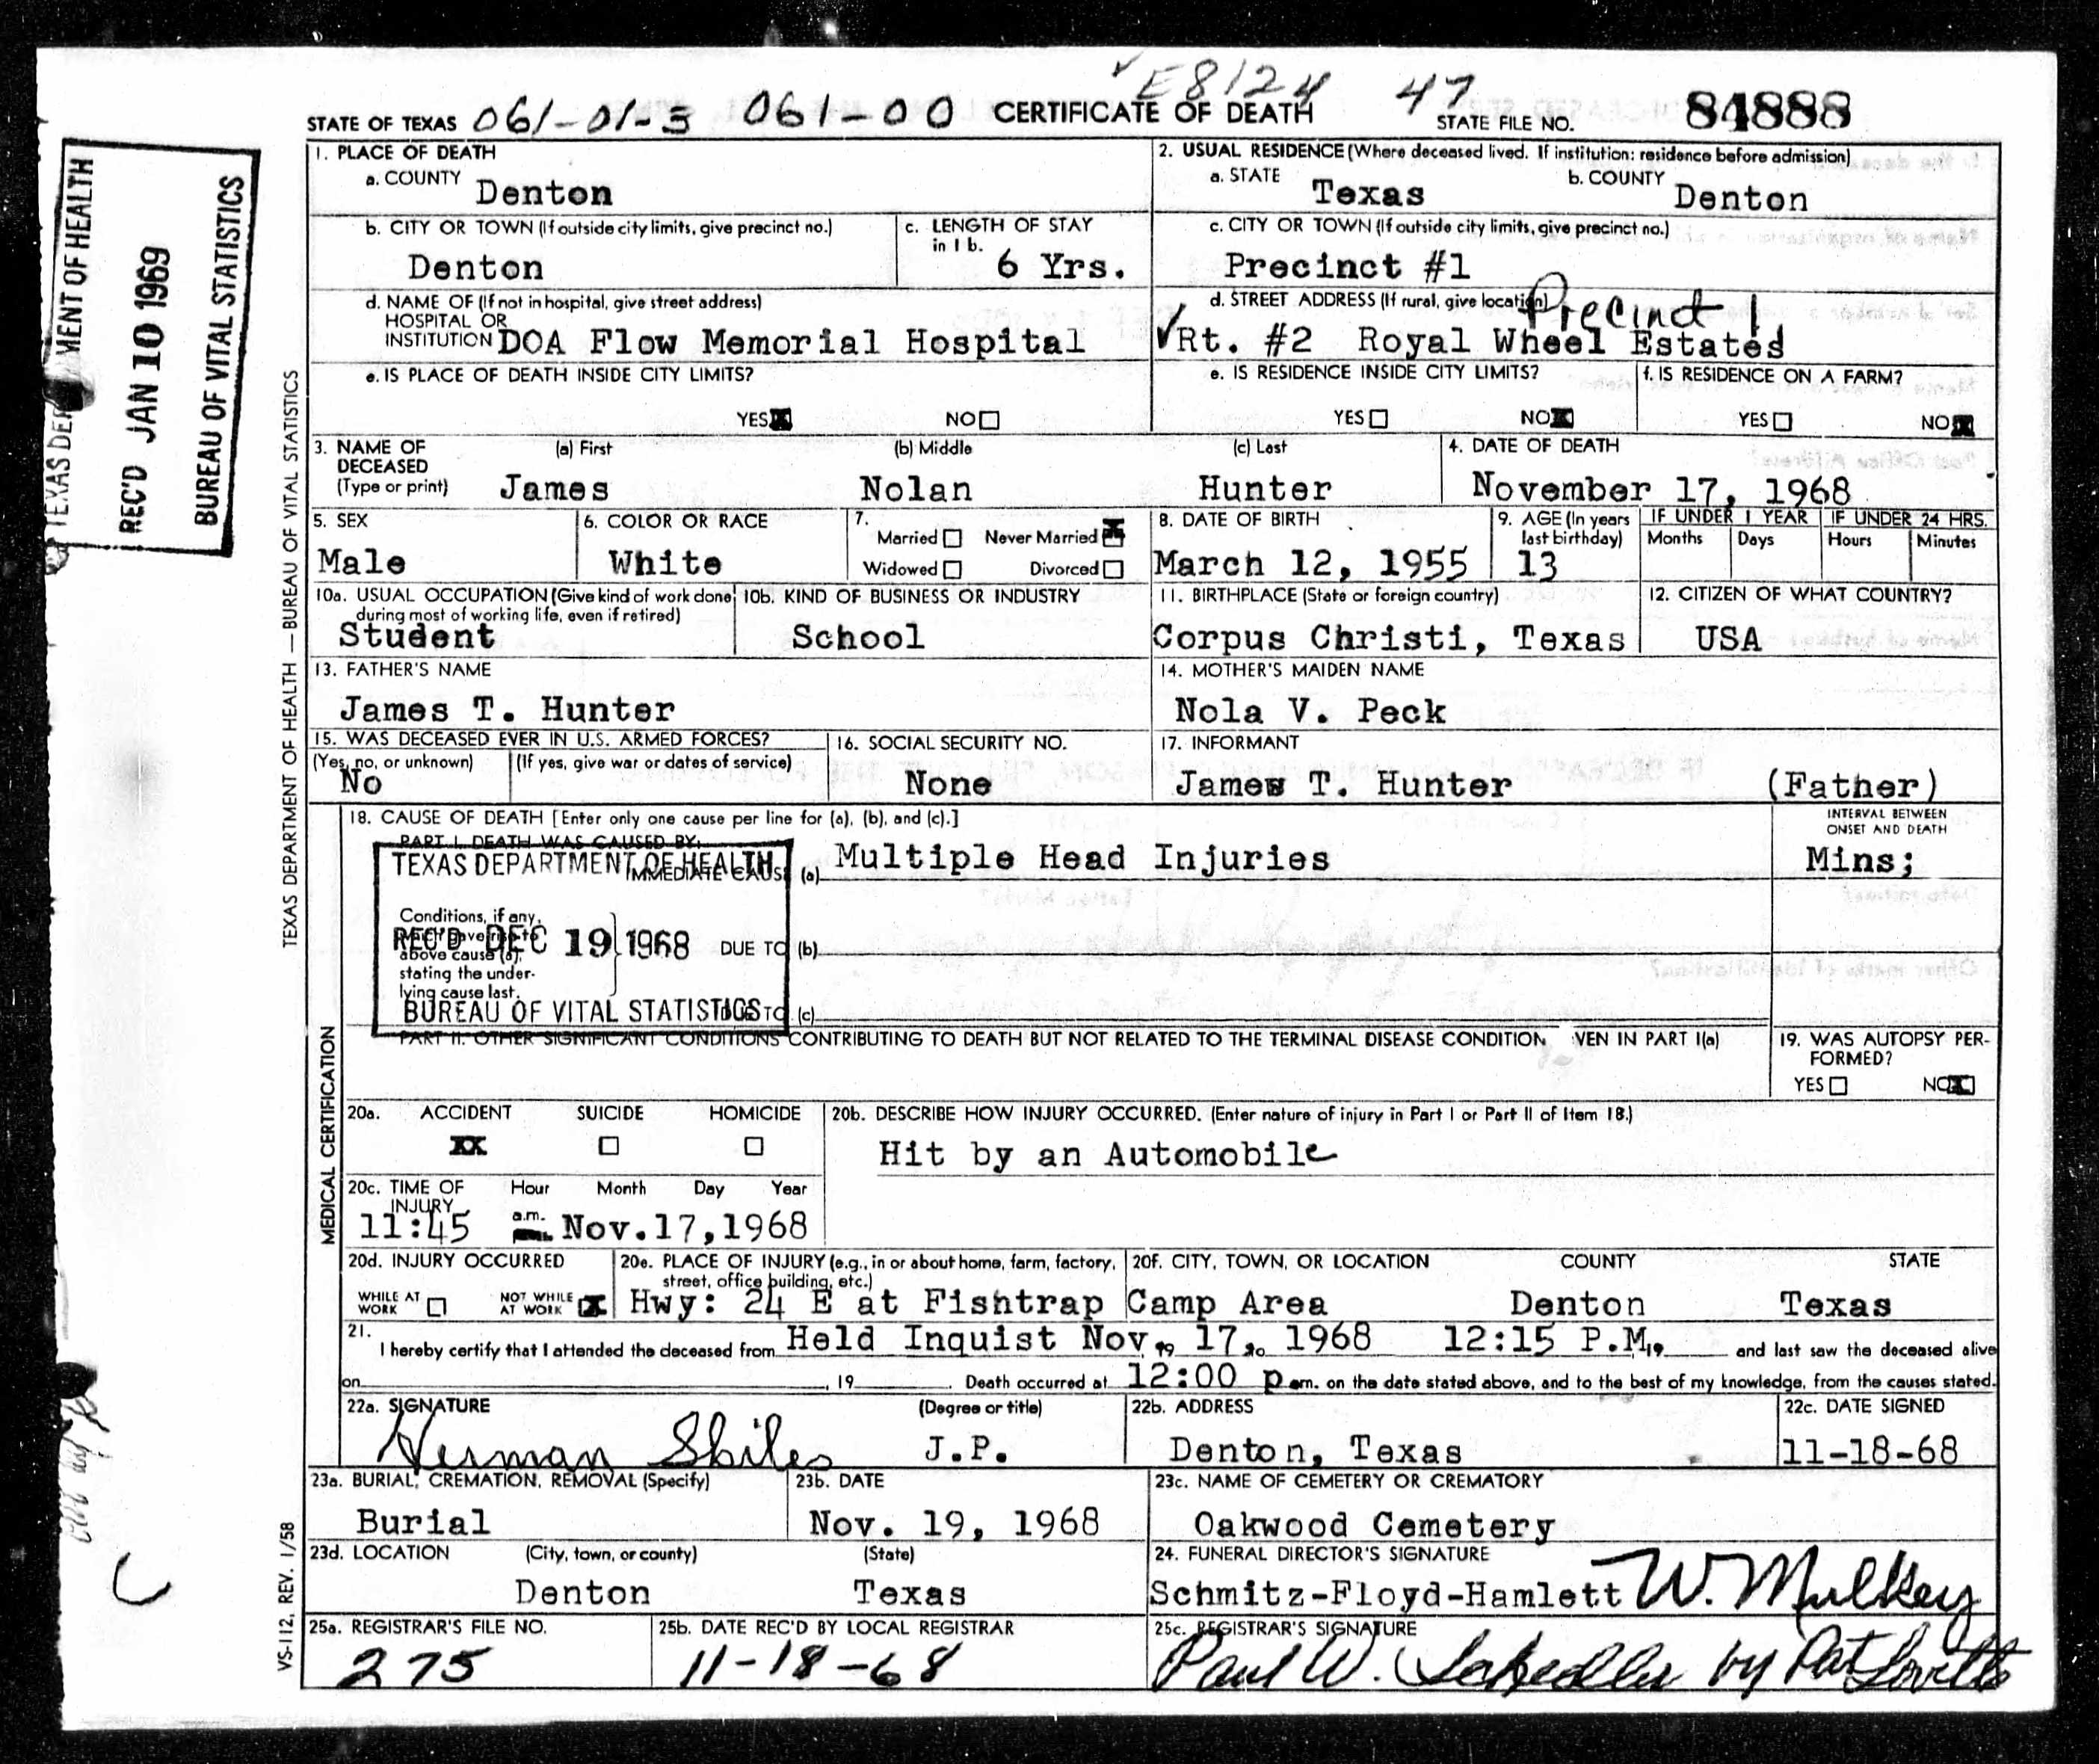 E8124 47
STATE OF TEXAS 061-01-3 061-00 CERTIFICATE OF DEATH STATE FILE NO. 84888
TEXAS DEPARTMENT OF HEALTH
REC'D JAN 10 1969
BUREAU OF VITAL STATISTICS
TEXAS DEPARTMENT OF HEALTH — BUREAU OF VITAL STATISTICS
1. PLACE OF DEATH
a. COUNTY Denton
2. USUAL RESIDENCE (Where deceased lived. If institution: residence before admission)
a. STATE Texas b. COUNTY Denton
b. CITY OR TOWN (If outside city limits, give precinct no.) Denton
c. LENGTH OF STAY in 1 b. 6 Yrs.
c. CITY OR TOWN (If outside city limits, give precinct no.)
Precinct #1
d. NAME OF (If not in hospital, give street address)
HOSPITAL OR
INSTITUTION DOA Flow Memorial Hospital
d. STREET ADDRESS (If rural, give location) Precinct 1
Rt. #2 Royal Wheel Estated
e. IS PLACE OF DEATH INSIDE CITY LIMITS?
YES X NO
e. IS RESIDENCE INSIDE CITY LIMITS?
YES NO X
f. IS RESIDENCE ON A FARM?
YES NO X
3. NAME OF DECEASED (Type or print)
(a) First (b) Middle (c) Last
James Nolan Hunter
4. DATE OF DEATH
November 17, 1968
5. SEX
Male
6. COLOR OR RACE
White
7. Married Never Married X
Widowed Divorced
8. DATE OF BIRTH
March 12, 1955
9. AGE (In years last birthday)
13
IF UNDER 1 YEAR IF UNDER 24 HRS.
Months Days Hours Minutes
10a. USUAL OCCUPATION (Give kind of work done during most of working life, even if retired)
Student
10b. KIND OF BUSINESS OR INDUSTRY
School
11. BIRTHPLACE (State or foreign country)
Corpus Christi, Texas
12. CITIZEN OF WHAT COUNTRY?
USA
13. FATHER'S NAME
James T. Hunter
14. MOTHER'S MAIDEN NAME
Nola V. Peck
15. WAS DECEASED EVER IN U.S. ARMED FORCES?
(Yes, no, or unknown) (If yes, give war or dates of service)
No
16. SOCIAL SECURITY NO.
None
17. INFORMANT
James T. Hunter (Father)
MEDICAL CERTIFICATION
18. CAUSE OF DEATH [Enter only one cause per line for (a), (b), and (c).]
INTERVAL BETWEEN ONSET AND DEATH
PART I. DEATH WAS CAUSED BY:
IMMEDIATE CAUSE (a) Multiple Head Injuries Mins;
TEXAS DEPARTMENT OF HEALTH
REC'D DEC 19 1968
BUREAU OF VITAL STATISTICS
Conditions, if any, which gave rise to above cause (a), stating the underlying cause last.
DUE TO (b)
DUE TO (c)
PART II. OTHER SIGNIFICANT CONDITIONS CONTRIBUTING TO DEATH BUT NOT RELATED TO THE TERMINAL DISEASE CONDITION VEN IN PART I(a)
19. WAS AUTOPSY PERFORMED?
YES NO X
20a. ACCIDENT SUICIDE HOMICIDE
XX
20b. DESCRIBE HOW INJURY OCCURRED. (Enter nature of injury in Part I or Part II of Item 18.)
Hit by an Automobile
20c. TIME OF INJURY Hour Month Day Year
11:45 a.m. Nov.17,1968
20d. INJURY OCCURRED
WHILE AT WORK NOT WHILE AT WORK X
20e. PLACE OF INJURY (e.g., in or about home, farm, factory, street, office building, etc.)
Hwy: 24 E at Fishtrap
20f. CITY, TOWN, OR LOCATION COUNTY STATE
Camp Area Denton Texas
21. I hereby certify that I attended the deceased from Held Inquist Nov. 19 17, to 1968 12:15 P.M. 19 and last saw the deceased alive
on , 19 . Death occurred at 12:00 p m. on the date stated above, and to the best of my knowledge, from the causes stated.
22a. SIGNATURE (Degree or title)
Herman Shiles J.P.
22b. ADDRESS
Denton, Texas
22c. DATE SIGNED
11-18-68
23a. BURIAL, CREMATION, REMOVAL (Specify)
Burial
23b. DATE
Nov. 19, 1968
23c. NAME OF CEMETERY OR CREMATORY
Oakwood Cemetery
23d. LOCATION (City, town, or county) (State)
Denton Texas
24. FUNERAL DIRECTOR'S SIGNATURE
Schmitz-Floyd-Hamlett W. Mulkey
25a. REGISTRAR'S FILE NO.
275
25b. DATE REC'D BY LOCAL REGISTRAR
11-18-68
25c. REGISTRAR'S SIGNATURE
Paul W. by Pat Lovette
VS-112, REV. 1/58
C